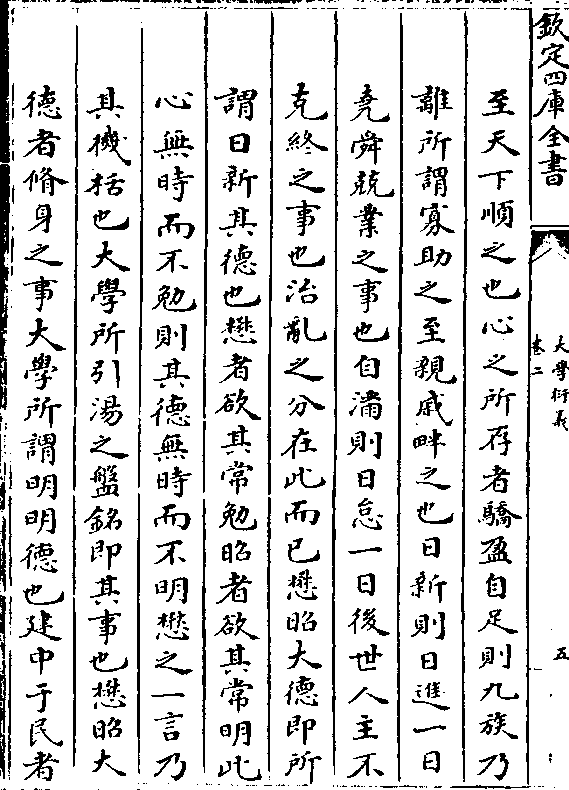 欽定四庫全書
大學衍義
卷二
五
至天下順之也心之所存者驕盈自足則九族乃
離所謂寡助之至親戚畔之也日新則日進一日
堯舜兢業之事也自滿則日怠一日後世人主不
克終之事也治亂之分在此而已懋昭大德即所
謂日新其德也懋者欲其常勉昭者欲其常明此
心無時而不勉則其德無時而不明懋之一言乃
其機括也大學所引湯之盤銘即其事也懋昭大
德者脩身之事大學所謂明明德也建中于民者